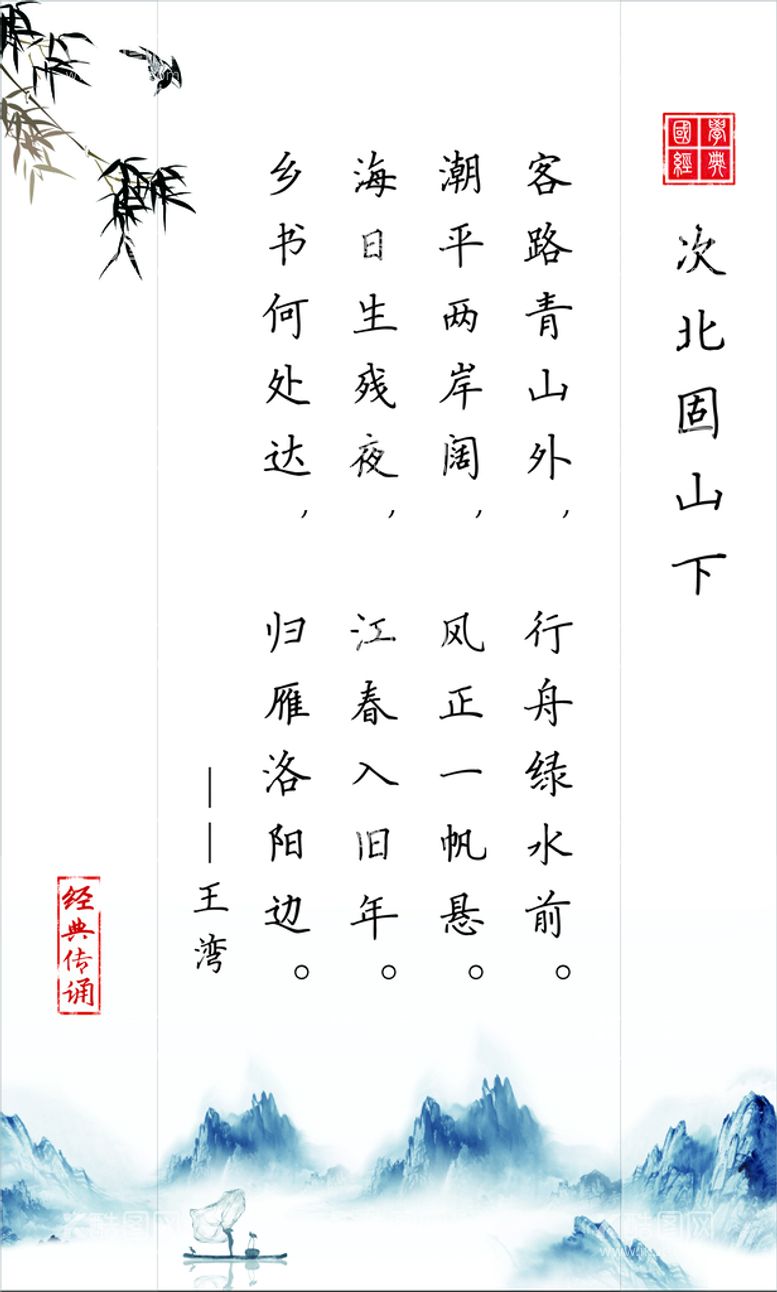 國學經典
次北固山下
客路青山外，行舟绿水前。
潮平两岸阔，风正一帆悬。
海日生残夜，江春入旧年。
乡书何处达，归雁洛阳边。
——王湾
经典传诵